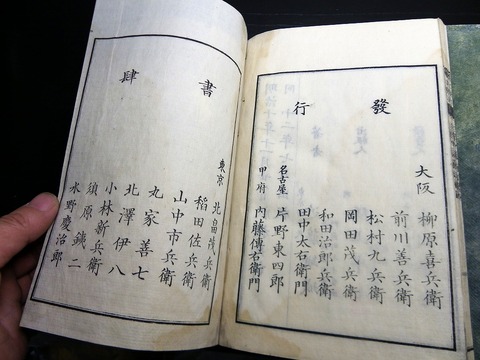 發行
大阪 柳原喜兵衛
前川善兵衛
松村九兵衛
岡田茂兵衛
和田治郎兵衛
田中太右衛門
名古屋 片野東四郎
甲府 内藤傳右衛門
書肆
東京 北畠茂兵衛
稲田佐兵衛
山中市兵衛
丸家善七
北澤伊八
小林新兵衛
須原鐵二
水野慶治郎